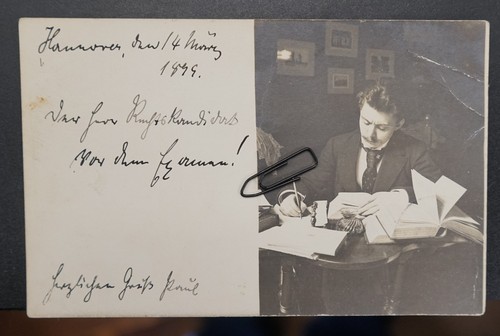 Hannover, den 14 März
1899.
Der Herr Rechtskandidat
vor dem Examen!
Herzlichen Gruß Paul